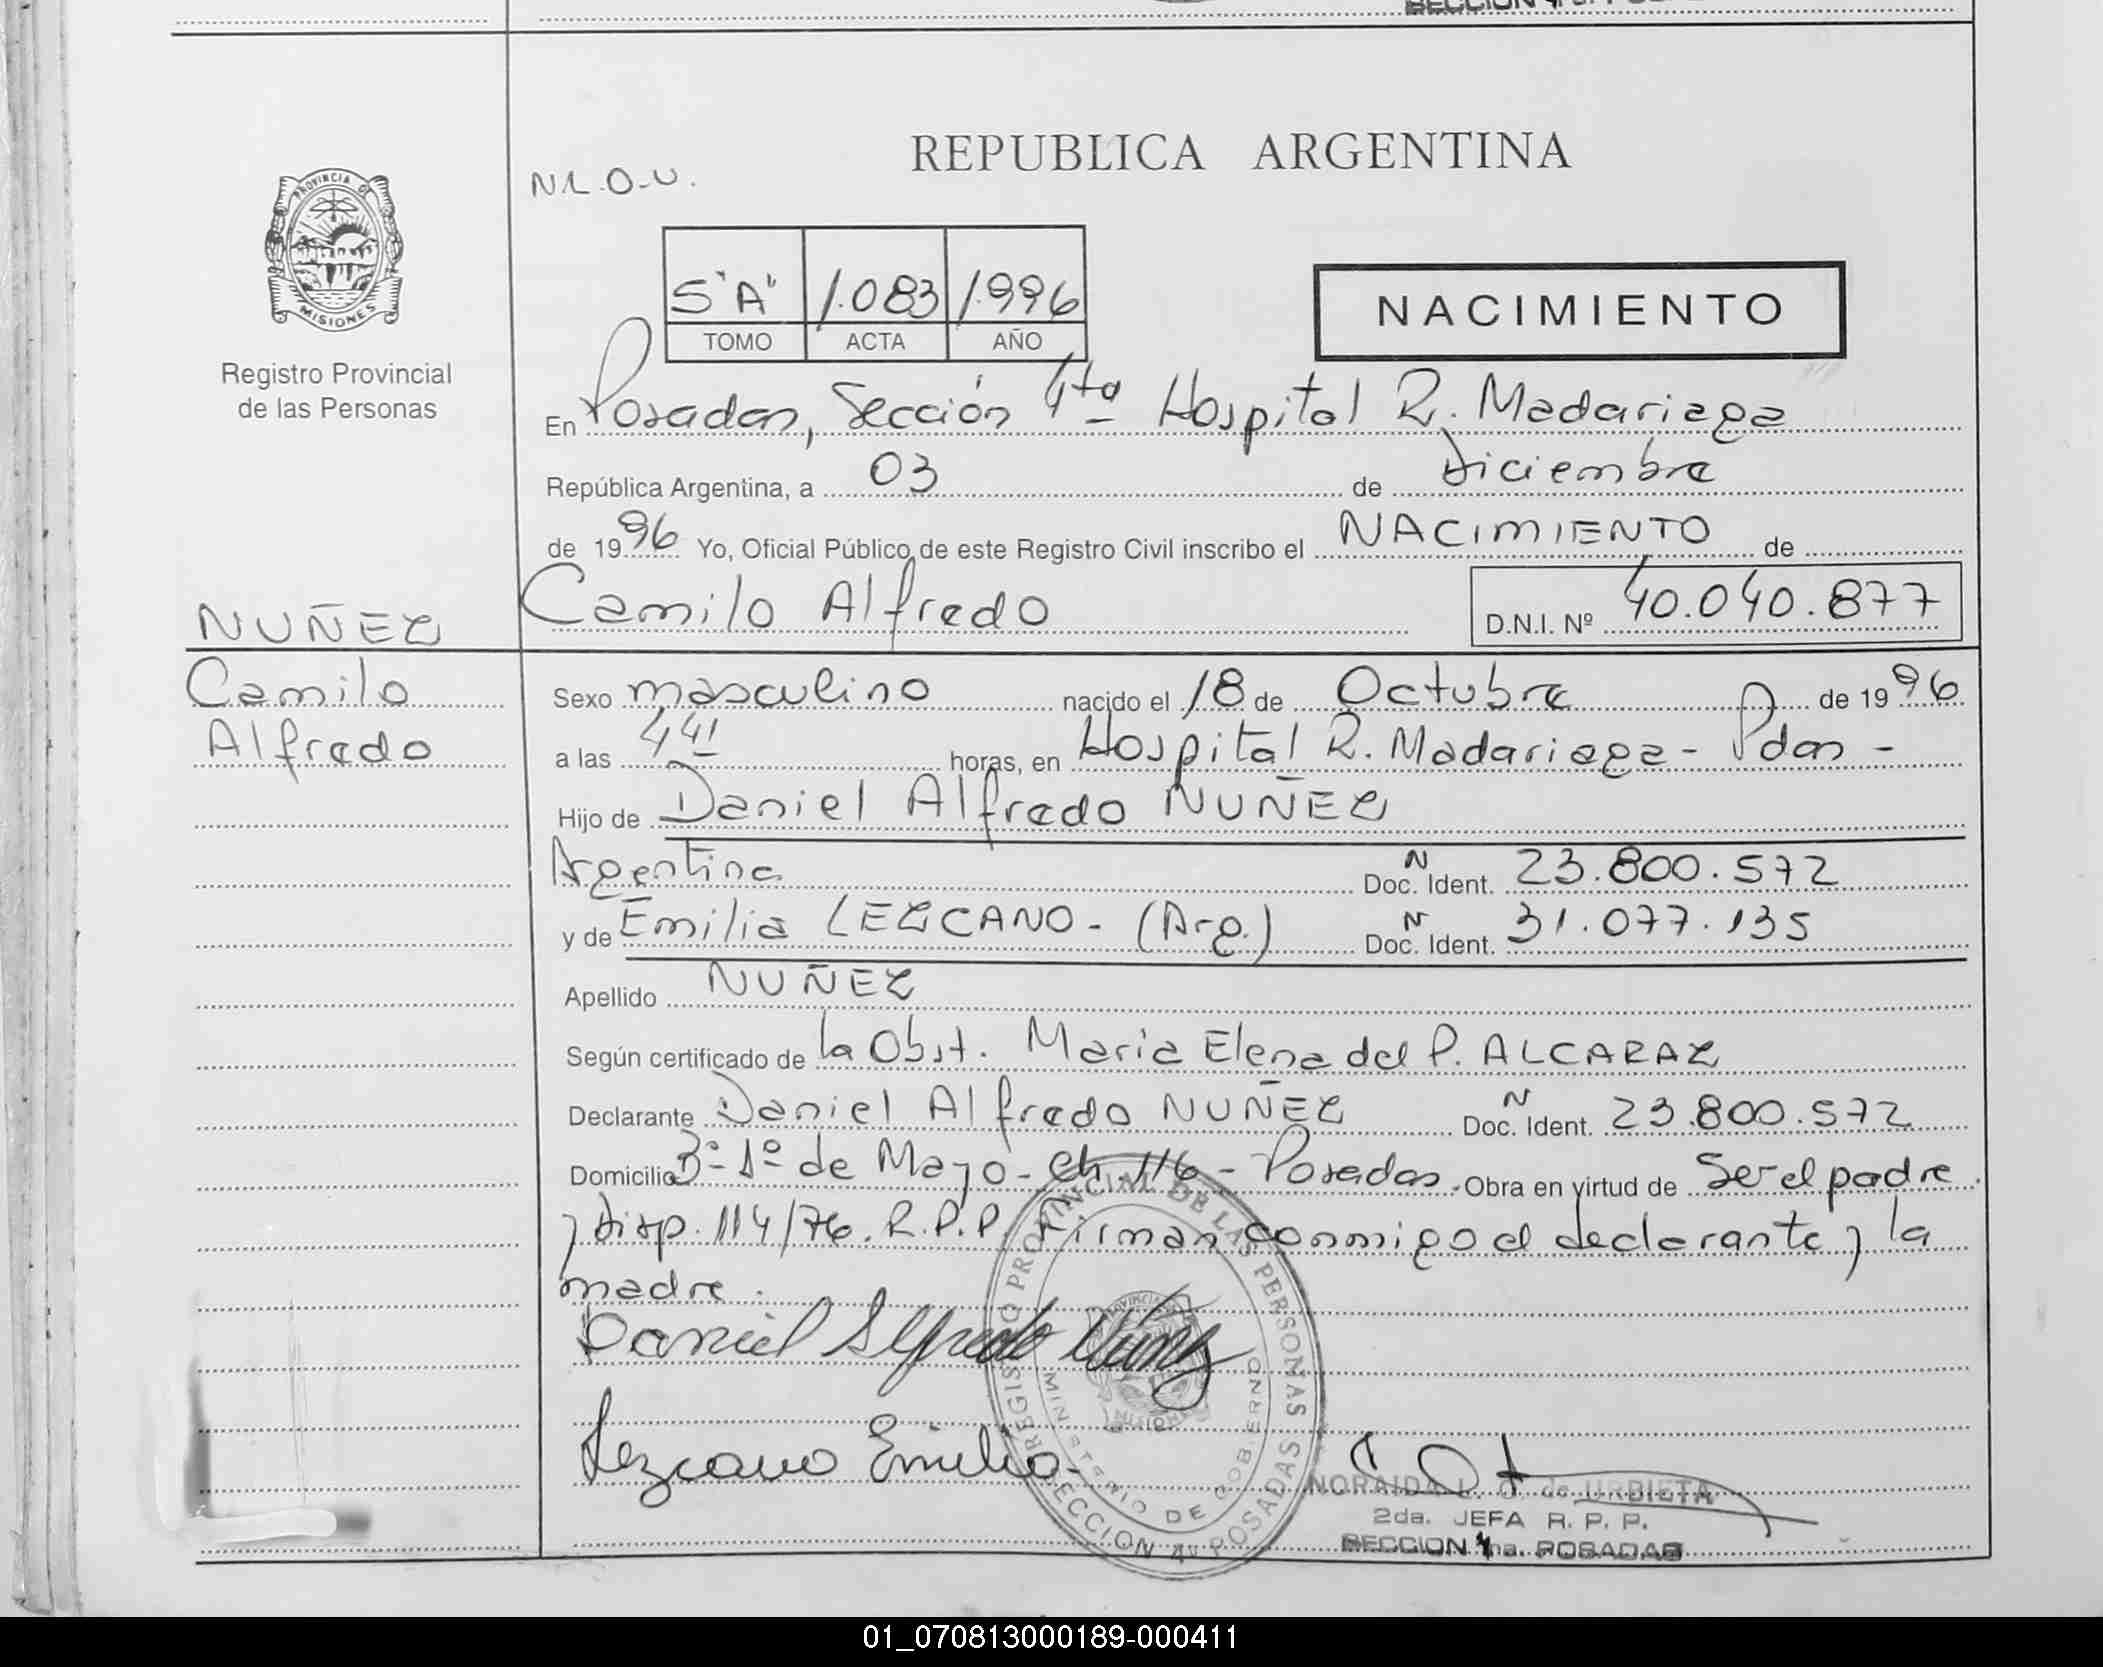 REPUBLICA ARGENTINA
N.L.O.U.
PROVINCIA DE
MISIONES
Registro Provincial
de las Personas
5 "A" 1.083 1.996
TOMO ACTA AÑO
NACIMIENTO
En Posadas, Sección 4ta Hospital R. Madariaga
República Argentina, a 03 de Diciembre
de 1996 Yo, Oficial Público de este Registro Civil inscribo el NACIMIENTO de
Camilo Alfredo D.N.I. Nº 40.040.877
NUÑEZ
Camilo
Alfredo
Sexo masculino nacido el 18 de Octubre de 1996
a las 4 41 horas, en Hospital R. Madariaga - Pdas -
Hijo de Daniel Alfredo NUÑEZ
Argentina Doc. N Ident. 23.800.572
y de Emilia LEZCANO - (Arg.) Doc. N Ident. 31.077.135
Apellido NUÑEZ
Según certificado de la Obst. Maria Elena del P. ALCARAZ
Declarante Daniel Alfredo NUÑEZ Doc. N Ident. 23.800.572
Domicilio Bº 1º de Mayo - Ch 116 - Posadas. Obra en virtud de Ser el padre
y Disp. 114/76. R.P.P. Firman conmigo el declarante y la
madre.
Daniel Alfredo Nuñez
Lezcano Emilia
REGISTRO PROVINCIAL DE LAS PERSONAS
MINISTERIO DE GOBIERNO
SECCION 4ta POSADAS
NORAIDA L. O. de URBIETA
2da. JEFA R. P. P.
SECCION 4ta. POSADAS
01_070813000189-000411